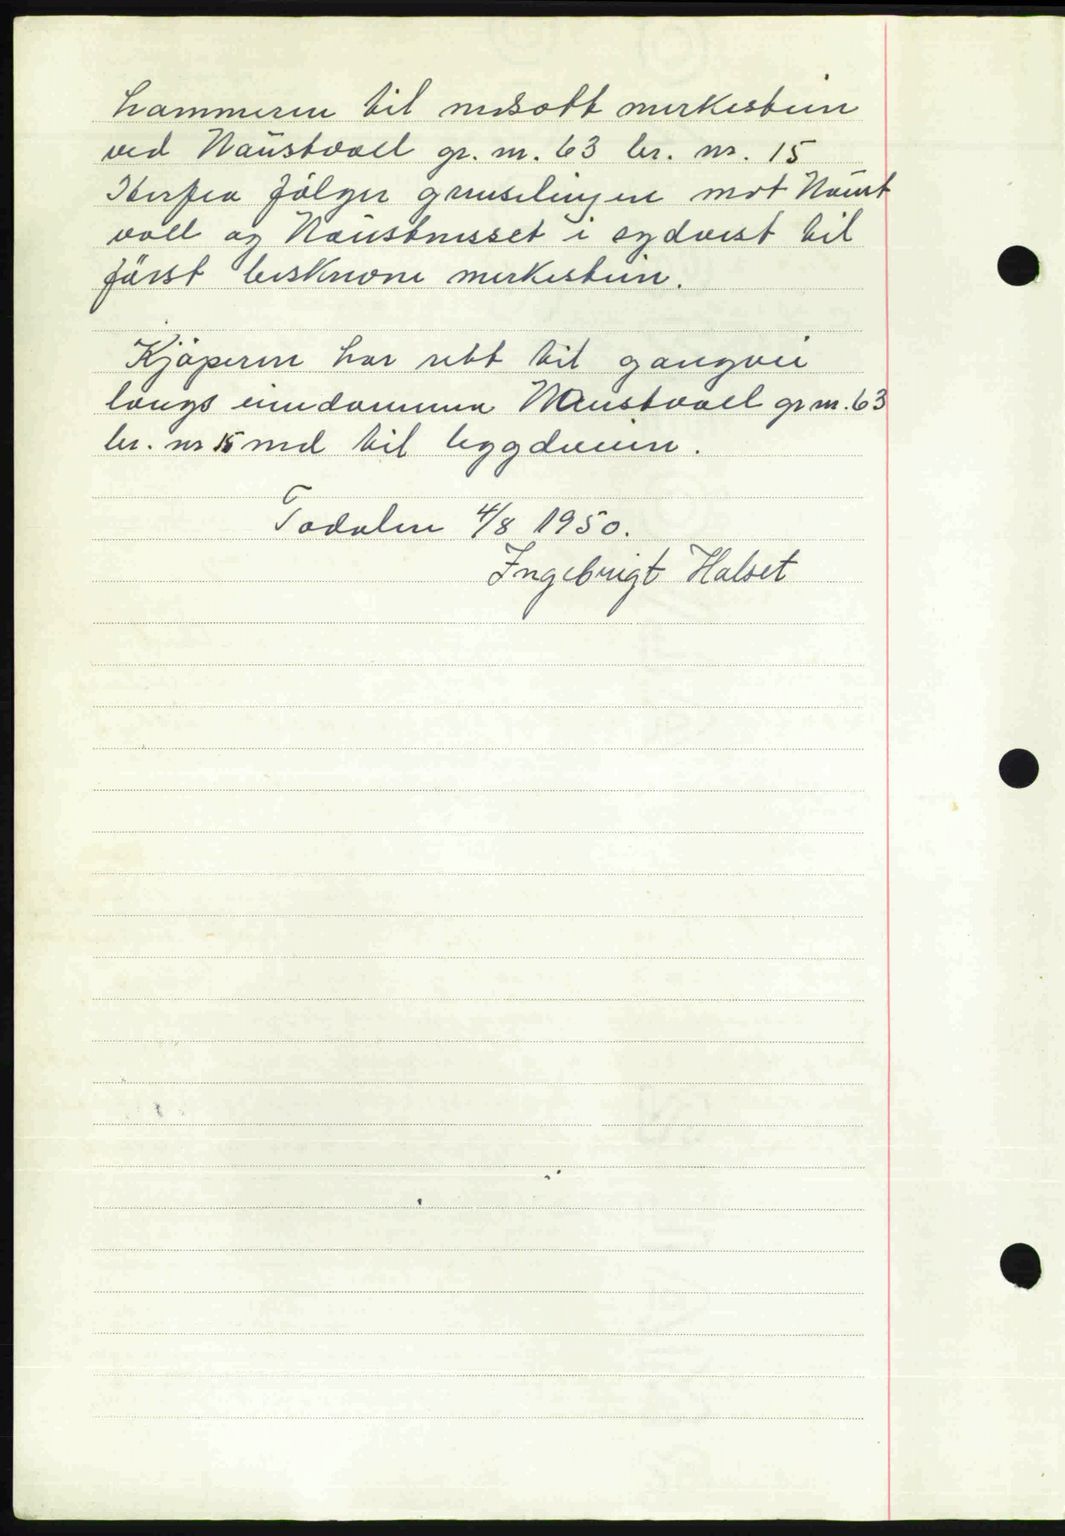 hammeren til nedsatt merkestein
ved Naustvoll gr. nr. 63 br. nr. 15
Herfra følger grenselinjen mot Naust
voll og Naustnesset i sydvest til
først beskrevne merkestein.
Kjøperen har rett til gangvei
langs eiendommen Naustvoll gr nr. 63
br. nr 15 ned til bygdveien.
Todalen 4/8 1950.
Ingebrigt Halset